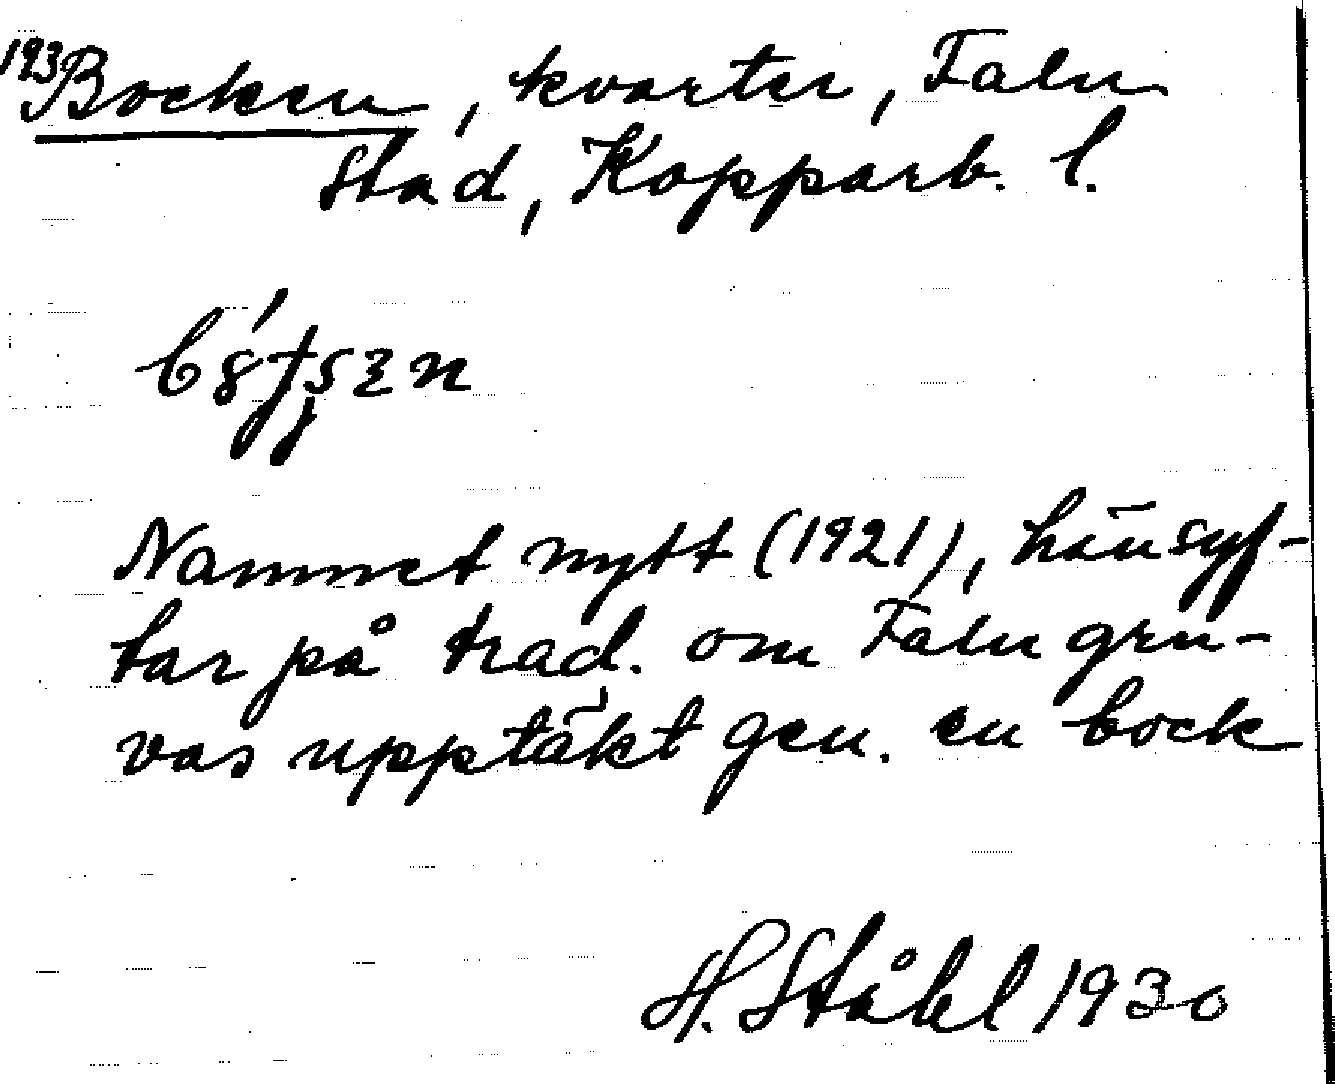 193 Bocken, kvarter, Falu
Stad, Kopparb. l.
Namnet nytt (1921), hänsyf-
tar på trad. om Falu gru-
vas upptäkt gen. en bock
H. Ståhl 1930